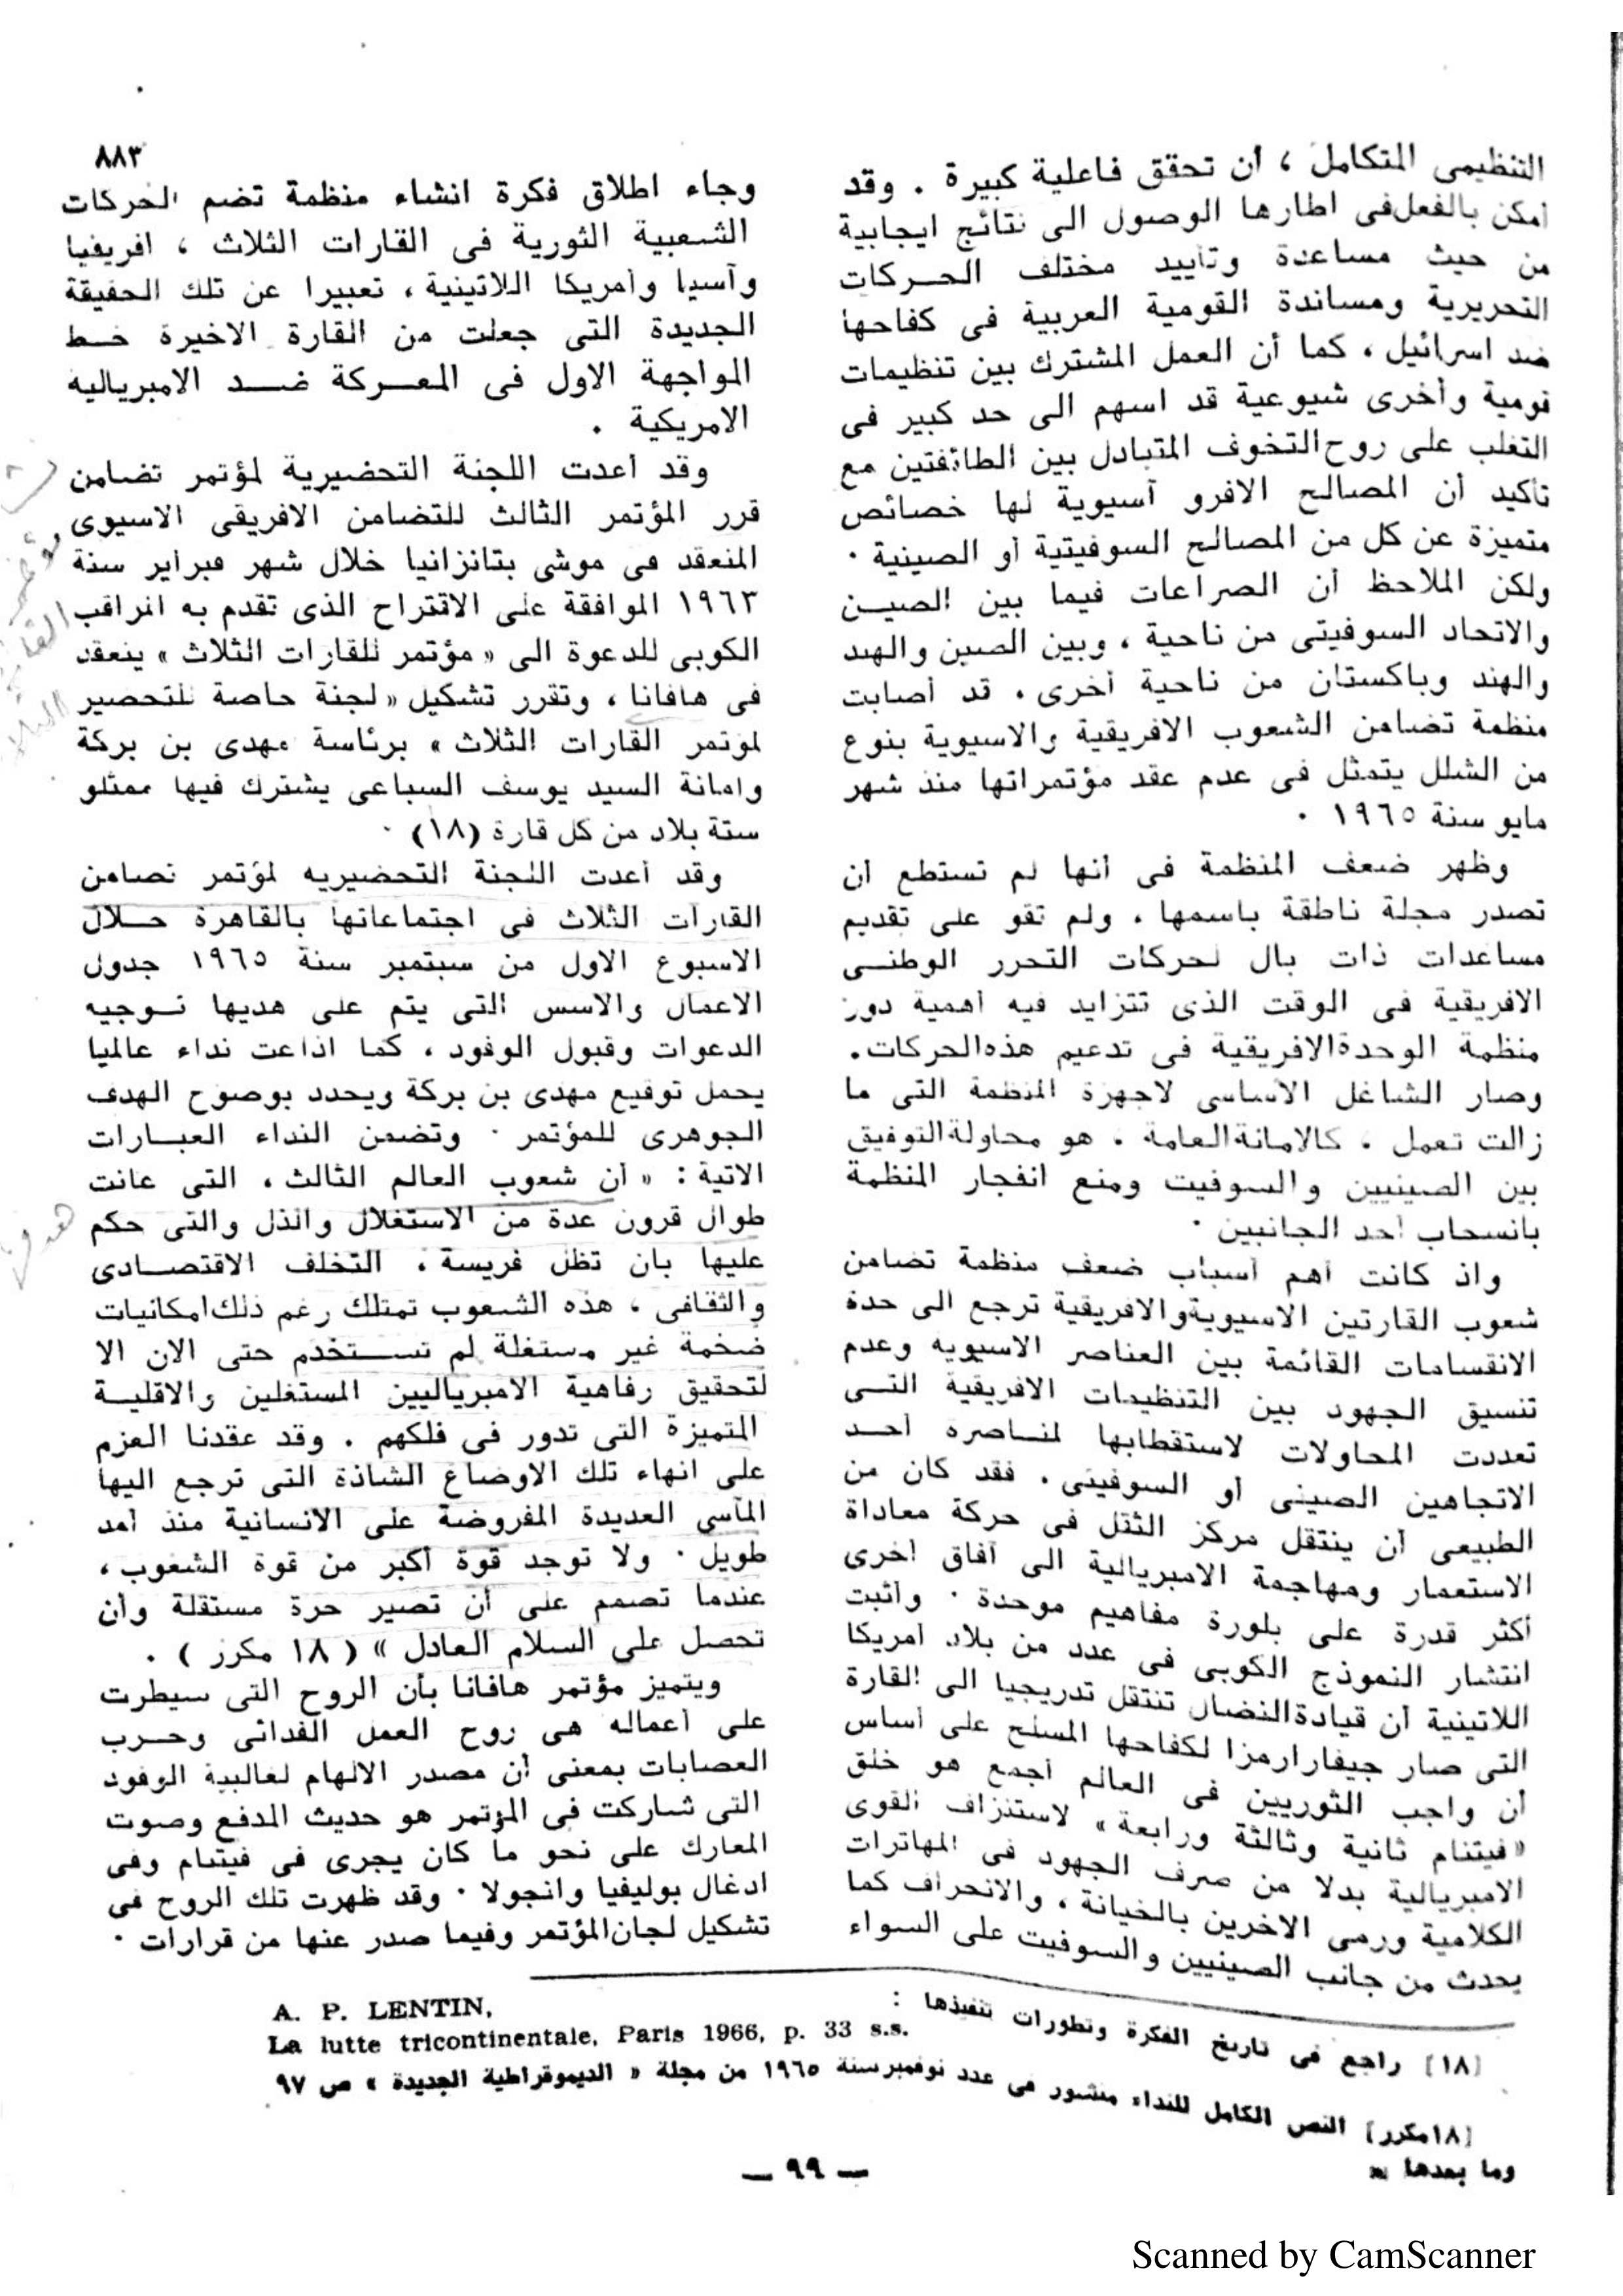 ٨٨٣
التنظيمى المتكامل ، أن تحقق فاعلية كبيرة . وقد
أمكن بالفعل فى اطارها الوصول الى نتائج ايجابية
من حيث مساعدة وتأييد مختلف الحركات
التحريرية ومساندة القومية العربية فى كفاحها
ضد اسرائيل ، كما أن العمل المشترك بين تنظيمات
قومية وأخرى شيوعية قد اسهم الى حد كبير فى
التغلب على روح التخوف المتبادل بين الطائفتين مع
تأكيد أن المصالح الافرو آسيوية لها خصائص
متميزة عن كل من المصالح السوفيتية أو الصينية .
ولكن الملاحظ أن الصراعات فيما بين الصين
والاتحاد السوفيتى من ناحية ، وبين الصين والهند
والهند وباكستان من ناحية أخرى ، قد أصابت
منظمة تضامن الشعوب الافريقية والاسيوية بنوع
من الشلل يتمثل فى عدم عقد مؤتمراتها منذ شهر
مايو سنة ١٩٦٥ .
وظهر ضعف المنظمة فى أنها لم تستطع أن
تصدر مجلة ناطقة باسمها ، ولم تقو على تقديم
مساعدات ذات بال لحركات التحرر الوطنى
الافريقية فى الوقت الذى تتزايد فيه أهمية دور
منظمة الوحدة الافريقية فى تدعيم هذه الحركات .
وصار الشاغل الأساسى لاجهزة المنظمة التى ما
زالت تعمل ، كالامانة العامة ، هو محاولة التوفيق
بين الصينيين والسوفيت ومنع انفجار المنظمة
بانسحاب أحد الجانبين .
واذ كانت أهم أسباب ضعف منظمة تضامن
شعوب القارتين الاسيوية والافريقية ترجع الى حدة
الانقسامات القائمة بين العناصر الاسيويه وعدم
تنسيق الجهود بين التنظيمات الافريقية التى
تعددت المحاولات لاستقطابها لمناصره أحد
الاتجاهين الصينى أو السوفيتى . فقد كان من
الطبيعى أن ينتقل مركز الثقل فى حركة معاداة
الاستعمار ومهاجمة الامبريالية الى آفاق أخرى
أكثر قدرة على بلورة مفاهيم موحدة . وأثبت
انتشار النموذج الكوبى فى عدد من بلاد أمريكا
اللاتينية أن قيادة النضال تنتقل تدريجيا الى القارة
التى صار جيفارا رمزا لكفاحها المسلح على أساس
أن واجب الثوريين فى العالم أجمع هو خلق
« فيتنام ثانية وثالثة ورابعة » لاستنزاف القوى
الامبريالية بدلا من صرف الجهود فى المهاترات
الكلامية ورمى الاخرين بالخيانة ، والانحراف كما
يحدث من جانب الصينيين والسوفيت على السواء
وجاء اطلاق فكرة انشاء منظمة تضم الحركات
الشعبية الثورية فى القارات الثلاث ، افريقيا
وآسيا وأمريكا اللاتينية ، تعبيرا عن تلك الحقيقة
الجديدة التى جعلت من القارة الاخيرة خط
المواجهة الاول فى المعركة ضد الامبرياليه
الامريكية .
وقد أعدت اللجنة التحضيرية لمؤتمر تضامن
قرر المؤتمر الثالث للتضامن الافريقى الاسيوى
المنعقد فى موشى بتانزانيا خلال شهر فبراير سنة
١٩٦٣ الموافقة على الاقتراح الذى تقدم به المراقب
الكوبى للدعوة الى « مؤتمر للقارات الثلاث » ينعقد
فى هافانا ، وتقرر تشكيل « لجنة خاصة للتحضير
لمؤتمر القارات الثلاث » برئاسة مهدى بن بركة
وامانة السيد يوسف السباعى يشترك فيها ممثلو
ستة بلاد من كل قارة (١٨) .
وقد أعدت اللجنة التحضيريه لمؤتمر تضامن
القارات الثلاث فى اجتماعاتها بالقاهرة خلال
الاسبوع الاول من سبتمبر سنة ١٩٦٥ جدول
الاعمال والاسس التى يتم على هديها توجيه
الدعوات وقبول الوفود ، كما اذاعت نداء عالميا
يحمل توقيع مهدى بن بركة ويحدد بوضوح الهدف
الجوهرى للمؤتمر . وتضمن النداء العبارات
الاتية : « أن شعوب العالم الثالث ، التى عانت
طوال قرون عدة من الاستغلال والذل والتى حكم
عليها بان تظل فريسة ، التخلف الاقتصادى
والثقافى ، هذه الشعوب تمتلك رغم ذلك امكانيات
ضخمة غير مستغلة لم تستخدم حتى الان الا
لتحقيق رفاهية الامبرياليين المستغلين والاقلية
المتميزة التى تدور فى فلكهم . وقد عقدنا العزم
على انهاء تلك الاوضاع الشاذة التى ترجع اليها
المآسى العديدة المفروضة على الانسانية منذ أمد
طويل . ولا توجد قوة أكبر من قوة الشعوب ،
عندما تصمم على أن تصير حرة مستقلة وأن
تحصل على السلام العادل » ( ١٨ مكرر ) .
ويتميز مؤتمر هافانا بأن الروح التى سيطرت
على أعماله هى روح العمل الفدائى وحرب
العصابات بمعنى أن مصدر الالهام لغالبية الوفود
التى شاركت فى المؤتمر هو حديث المدفع وصوت
المعارك على نحو ما كان يجرى فى فيتنام وفى
ادغال بوليفيا وانجولا . وقد ظهرت تلك الروح فى
تشكيل لجان المؤتمر وفيما صدر عنها من قرارات .
هدف
(١٨) راجع فى تاريخ الفكرة وتطورات تنفيذها :
A. P. LENTIN,
La lutte tricontinentale, Paris 1966, p. 33 s.s.
(١٨مكرر) النص الكامل للنداء منشور فى عدد نوفمبر سنة ١٩٦٥ من مجلة « الديموقراطية الجديدة » ص ٩٧
وما بعدها
— ٩٩ —
Scanned by CamScanner